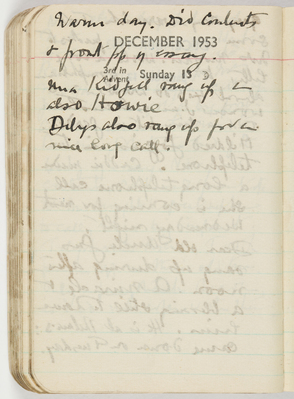 Warm day. Did Contents
& front pp of essay.
DECEMBER 1953
3rd in Advent Sunday 13
Mrs Kidgell rang up &
also Howie
Dilys also rang up for a
nice long call